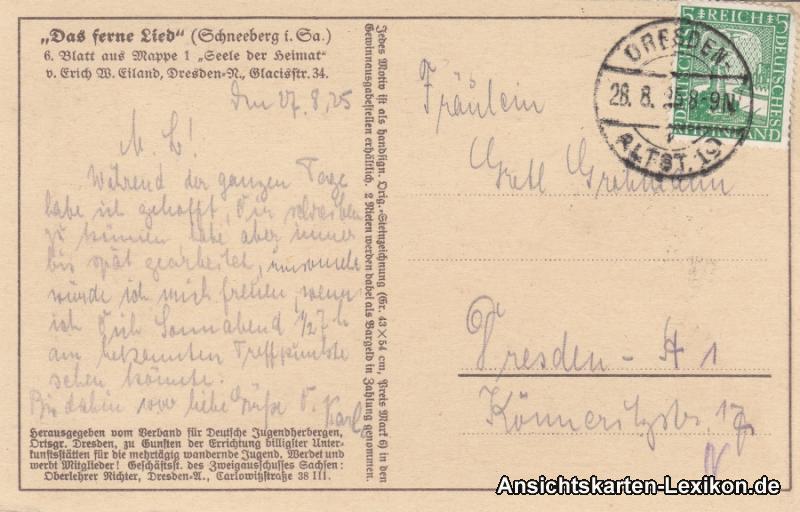 „Das ferne Lied“ (Schneeberg i. Sa.)
6. Blatt aus Mappe 1 „Seele der Heimat“
v. Erich W. Eiland, Dresden-N., Glacisstr. 34.
Den 27.8.25
M. L!
Während der ganzen Tage
habe ich gehofft, Dir schreiben
zu können habe aber immer
bis spät gearbeitet, umsomehr
würde ich mich freuen, wenn
ich Dich Sonnabend 1/2 7 h
am bekannten Treffpunkte
sehen könnte.
Bis dahin liebe Grüße D. Karl
Herausgegeben vom Verband für Deutsche Jugendherbergen,
Ortsgr. Dresden, zu Gunsten der Errichtung billigster Unter-
kunftsstätten für die mehrtägig wandernde Jugend. Werdet und
werbt Mitglieder! Geschäftsst. des Zweigausschusses Sachsen:
Oberlehrer Richter, Dresden-A., Carlowitzstraße 38 III.
Jedes Motiv ist als handsign. Orig.-Steinzeichnung (Gr. 43×54 cm, Preis Mark 6) in den
Gewinnausgabestellen erhältlich. 2 Nieten werden dabei als Bargeld in Zahlung genommen.
5 REICH 5
DEUTSCHES
DRESDEN-
28.8.25 8-9N
ALTST. 19
Fräulein
Gretl
Dresden - A 1
Könneritzstr.
Ansichtskarten-Lexikon.de